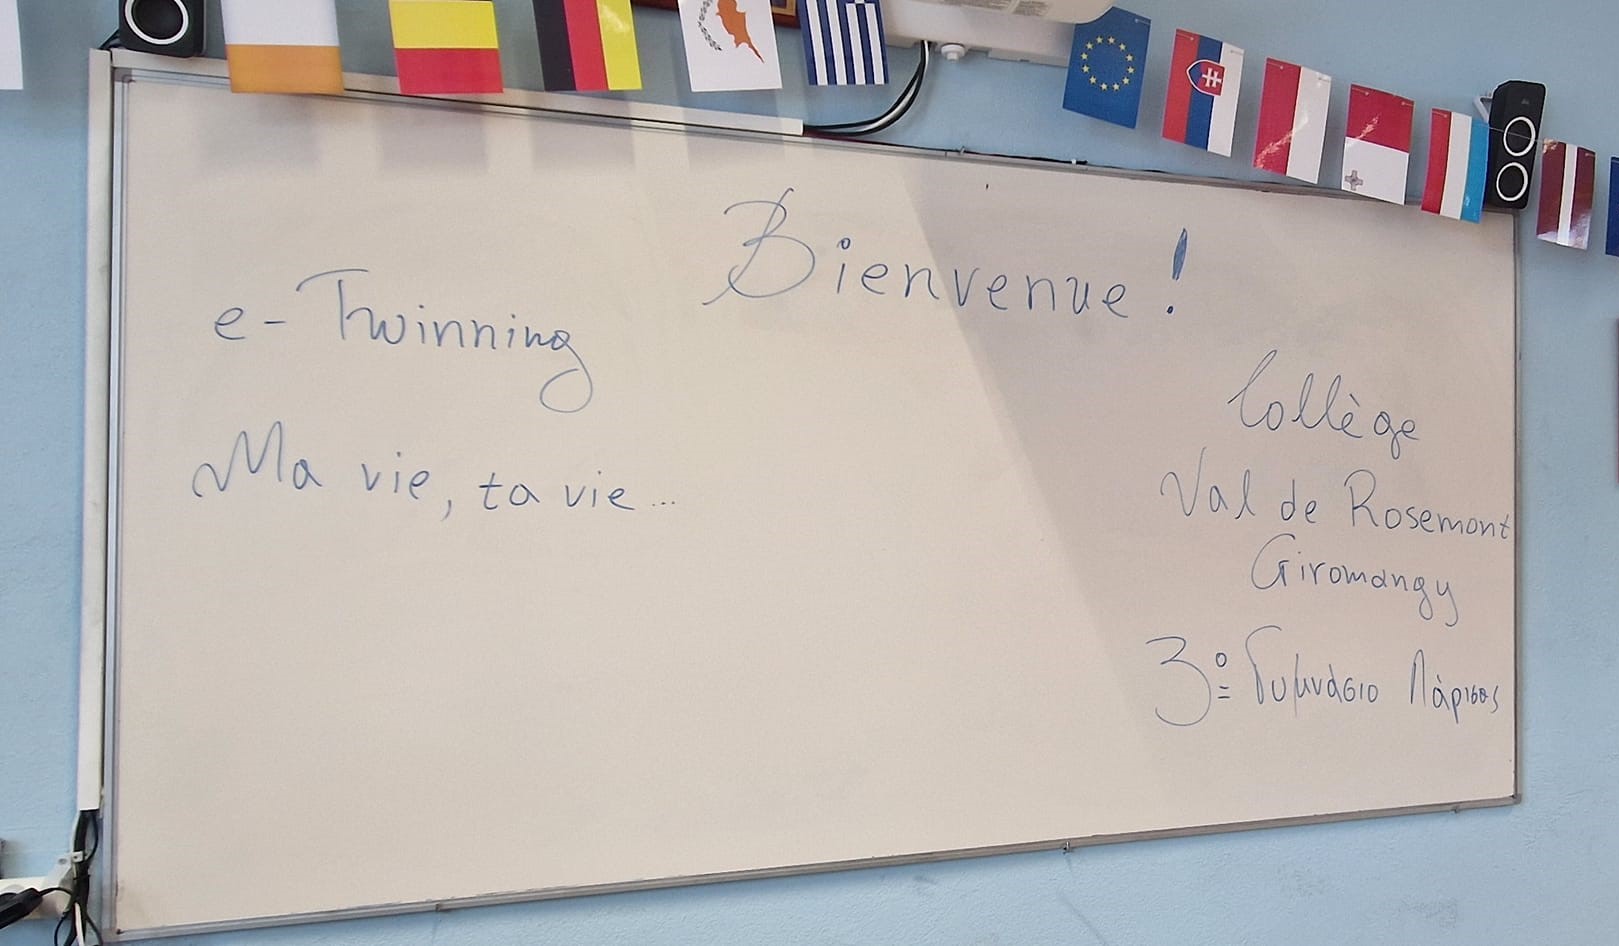 Bienvenue !
e-Twinning
Ma vie, ta vie...
Collège
Val de Rosemont
Giromangy
3º Γυμνάσιο Λάρισας